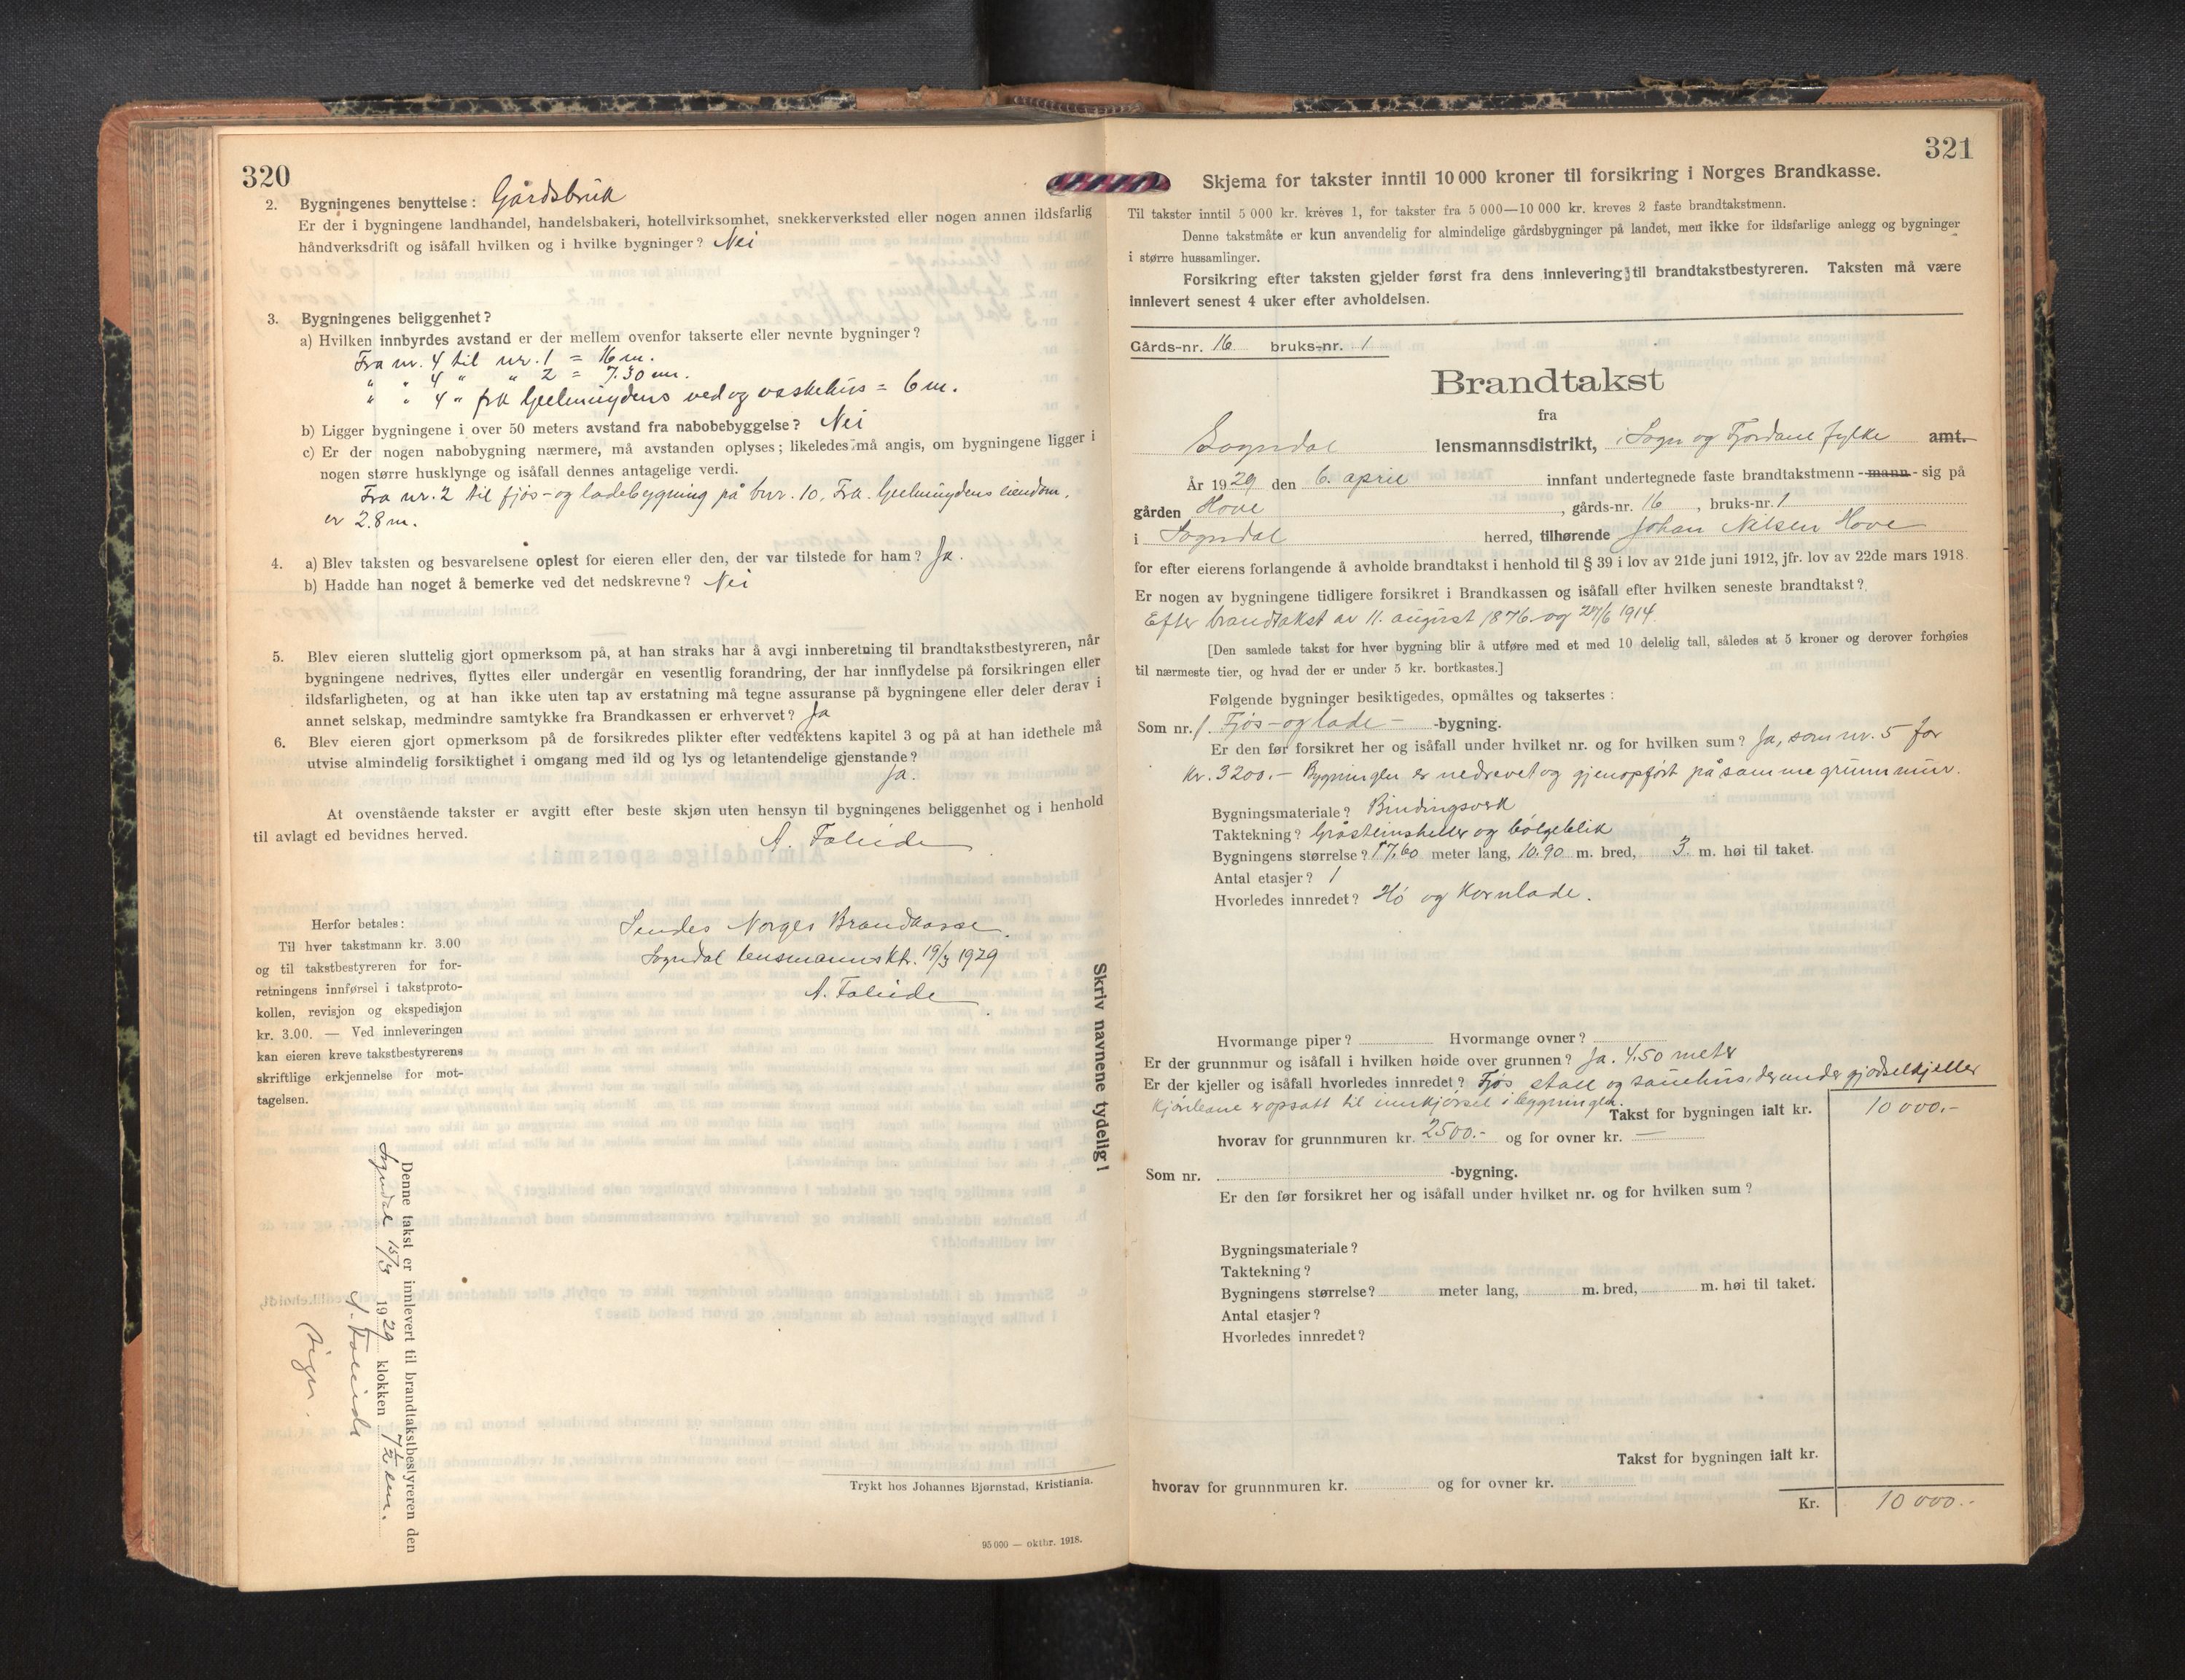 320
2. Bygningenes benyttelse: Gårdsbruk
Er der i bygningene landhandel, handelsbakeri, hotellvirksomhet, snekkerverksted eller nogen annen ildsfarlig
håndverksdrift og isåfall hvilken og i hvilke bygninger? Nei
3. Bygningenes beliggenhet?
a) Hvilken innbyrdes avstand er der mellem ovenfor takserte eller nevnte bygninger?
Fra nr. 4 til nr. 1 = 16 m.
" " 4 " " 2 = 7.30 m.
" " 4 " frk Gjelmuydens ved og vaskehus = 6 m.
b) Ligger bygningene i over 50 meters avstand fra nabobebyggelse? Nei
c) Er der nogen nabobygning nærmere, må avstanden oplyses; likeledes må angis, om bygningene ligger i
nogen større husklynge og isåfall dennes antagelige verdi.
Fra nr. 2 til fjøs- og ladebygning på bnr. 10, Frk. Gjelmuydens eiendom,
er 2.8 m.
4. a) Blev taksten og besvarelsene oplest for eieren eller den, der var tilstede for ham? Ja.
b) Hadde han noget å bemerke ved det nedskrevne? Nei
5. Blev eieren sluttelig gjort opmerksom på, at han straks har å avgi innberetning til brandtakstbestyreren, når
bygningene nedrives, flyttes eller undergår en vesentlig forandring, der har innflydelse på forsikringen eller
ildsfarligheten, og at han ikke uten tap av erstatning må tegne assuranse på bygningene eller deler derav i
annet selskap, medmindre samtykke fra Brandkassen er erhvervet? Ja
6. Blev eieren gjort opmerksom på de forsikredes plikter efter vedtektens kapitel 3 og på at han idethele må
utvise almindelig forsiktighet i omgang med ild og lys og letantendelige gjenstande?
Ja.
At ovenstående takster er avgitt efter beste skjøn uten hensyn til bygningenes beliggenhet og i henhold
til avlagt ed bevidnes herved.
A. Faleide
Herfor betales:
Til hver takstmann kr. 3.00
og til takstbestyreren for for-
retningens innførsel i takstproto-
kollen, revisjon og ekspedisjon
kr. 3.00. — Ved innleveringen
kan eieren kreve takstbestyrerens
skriftlige erkjennelse for mot-
tagelsen.
Sendes Norges Brandkasse.
Sogndal lensmannsktr. 19/3 1929
A. Faleide
Skriv navnene tydelig!
Denne takst er innlevert til brandtakstbestyreren den
Sogndal 15/3 1929 klokken 7½ em.
A. Faleide
sign.
Trykt hos Johannes Bjørnstad, Kristiania.
95 000 — oktbr. 1918.
321
Skjema for takster inntil 10 000 kroner til forsikring i Norges Brandkasse.
Til takster inntil 5 000 kr. kreves 1, for takster fra 5 000—10 000 kr. kreves 2 faste brandtakstmenn.
Denne takstmåte er kun anvendelig for almindelige gårdsbygninger på landet, men ikke for ildsfarlige anlegg og bygninger
i større hussamlinger.
Forsikring efter taksten gjelder først fra dens innlevering til brandtakstbestyreren. Taksten må være
innlevert senest 4 uker efter avholdelsen.
Gårds-nr. 16 bruks-nr. 1
Brandtakst
fra
Sogndal lensmannsdistrikt, i Sogn og Fjordane fylke amt.
År 1929 den 6. april innfant undertegnede faste brandtakstmenn - mann - sig på
gården Hove, gårds-nr. 16, bruks-nr. 1
i Sogndal herred, tilhørende Johan Nilsen Hove
for efter eierens forlangende å avholde brandtakst i henhold til § 39 i lov av 21de juni 1912, jfr. lov av 22de mars 1918.
Er nogen av bygningene tidligere forsikret i Brandkassen og isåfall efter hvilken seneste brandtakst?
Efter brandtakst av 11. august 1876 og 27/6 1914.
[Den samlede takst for hver bygning blir å utføre med et med 10 delelig tall, således at 5 kroner og derover forhøies
til nærmeste tier, og hvad der er under 5 kr. bortkastes.]
Følgende bygninger besiktigedes, opmåltes og taksertes:
Som nr. 1. Fjøs- og lade- -bygning.
Er den før forsikret her og isåfall under hvilket nr. og for hvilken sum? Ja, som nr. 5 for
kr. 3200.- Bygningen er nedrevet og gjenopført på samme grunnmur.
Bygningsmateriale? Bindingsverk
Taktekning? Gråsteinsheller og bølgeblik
Bygningens størrelse? 17.60 meter lang, 10.90 m. bred, 3 m. høi til taket.
Antal etasjer? 1
Hvorledes innredet? Hø og Kornlade.
Hvormange piper? Hvormange ovner?
Er der grunnmur og isåfall i hvilken høide over grunnen? Ja. 4.50 meter
Er der kjeller og isåfall hvorledes innredet? Fjøs stall og sauehus, derunder gjødselkjeller
er opsatt til innkjørsel i byggningen.
Takst for bygningen ialt kr. 10 000.-
hvorav for grunnmuren kr. 2500.- og for ovner kr. —
Som nr. -bygning.
Er den før forsikret her og isåfall under hvilket nr. og for hvilken sum?
Bygningsmateriale?
Taktekning?
Bygningens størrelse? meter lang, m. bred, m. høi til taket.
Antal etasjer?
Hvorledes innredet?
Takst for bygningen ialt kr.
hvorav for grunnmuren kr. og for ovner kr.
Kr. 10 000.-